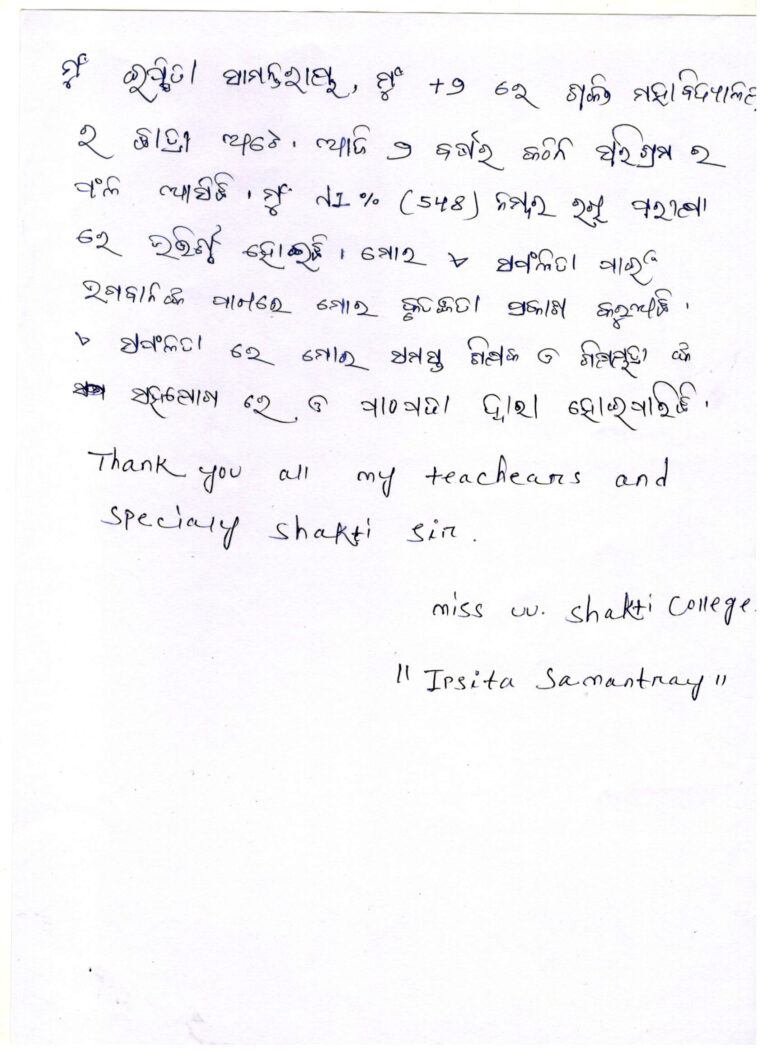 ମୁଁ ଇପ୍ସିତା ସାମନ୍ତରାୟ, ମୁଁ +୨ ରେ ଶକ୍ତି ମହାବିଦ୍ୟାଳୟ
ର ଛାତ୍ରୀ ଅଟେ । ଆଜି ୨ ବର୍ଷର କଠିନ ପରିଶ୍ରମ ର
ଫଳ ଆସିଛି । ମୁଁ % (548) ନମ୍ବର ରଖି ପରୀକ୍ଷା
ରେ ଉତ୍ତିର୍ଣ୍ଣ ହୋଇଛି । ମୋର ଏ ସଫଳତା ପାଇଁ
ଭଗବାନଙ୍କ ପାଖରେ ମୋର କୃତଜ୍ଞତା ପ୍ରକାଶ କରୁଅଛି ।
ଏ ସଫଳତା ରେ ମୋର ସମସ୍ତ ଶିକ୍ଷକ ଓ ଶିକ୍ଷୟତ୍ରୀ ଙ୍କ
ସହଯୋଗ ରେ ଓ ପାଠପଢା ଦ୍ୱାରା ହୋଇପାରିଛି ।
Thank you all my teachears and
specialy shakti sir.
miss uu. shakti college.
"Ipsita Samantray"